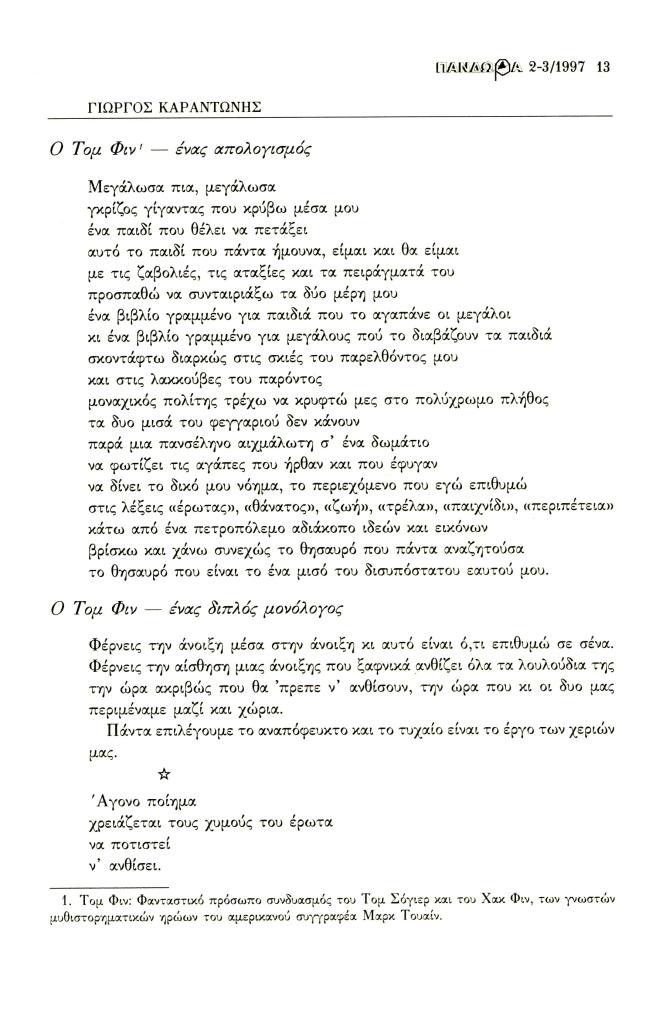 ΠΑΝΔΩΡΑ 2-3/1997 13
ΓΙΩΡΓΟΣ ΚΑΡΑΝΤΩΝΗΣ
Ο Τομ Φιν¹ — ένας απολογισμός
Μεγάλωσα πια, μεγάλωσα
γκρίζος γίγαντας που κρύβω μέσα μου
ένα παιδί που θέλει να πετάξει
αυτό το παιδί που πάντα ήμουνα, είμαι και θα είμαι
με τις ζαβολιές, τις αταξίες και τα πειράγματά του
προσπαθώ να συνταιριάξω τα δύο μέρη μου
ένα βιβλίο γραμμένο για παιδιά που το αγαπάνε οι μεγάλοι
κι ένα βιβλίο γραμμένο για μεγάλους πού το διαβάζουν τα παιδιά
σκοντάφτω διαρκώς στις σκιές του παρελθόντος μου
και στις λακκούβες του παρόντος
μοναχικός πολίτης τρέχω να κρυφτώ μες στο πολύχρωμο πλήθος
τα δυο μισά του φεγγαριού δεν κάνουν
παρά μια πανσέληνο αιχμάλωτη σ' ένα δωμάτιο
να φωτίζει τις αγάπες που ήρθαν και που έφυγαν
να δίνει το δικό μου νόημα, το περιεχόμενο που εγώ επιθυμώ
στις λέξεις «έρωτας», «θάνατος», «ζωή», «τρέλα», «παιχνίδι», «περιπέτεια»
κάτω από ένα πετροπόλεμο αδιάκοπο ιδεών και εικόνων
βρίσκω και χάνω συνεχώς το θησαυρό που πάντα αναζητούσα
το θησαυρό που είναι το ένα μισό του δισυπόστατου εαυτού μου.
Ο Τομ Φιν — ένας διπλός μονόλογος
Φέρνεις την άνοιξη μέσα στην άνοιξη κι αυτό είναι ό,τι επιθυμώ σε σένα.
Φέρνεις την αίσθηση μιας άνοιξης που ξαφνικά ανθίζει όλα τα λουλούδια της
την ώρα ακριβώς που θα 'πρεπε ν' ανθίσουν, την ώρα που κι οι δυο μας
περιμέναμε μαζί και χώρια.
Πάντα επιλέγουμε το αναπόφευκτο και το τυχαίο είναι το έργο των χεριών
μας.
☆
Άγονο ποίημα
χρειάζεται τους χυμούς του έρωτα
να ποτιστεί
ν' ανθίσει.
1. Τομ Φιν: Φανταστικό πρόσωπο συνδυασμός του Τομ Σόγιερ και του Χακ Φιν, των γνωστών
μυθιστορηματικών ηρώων του αμερικανού συγγραφέα Μαρκ Τουαίν.